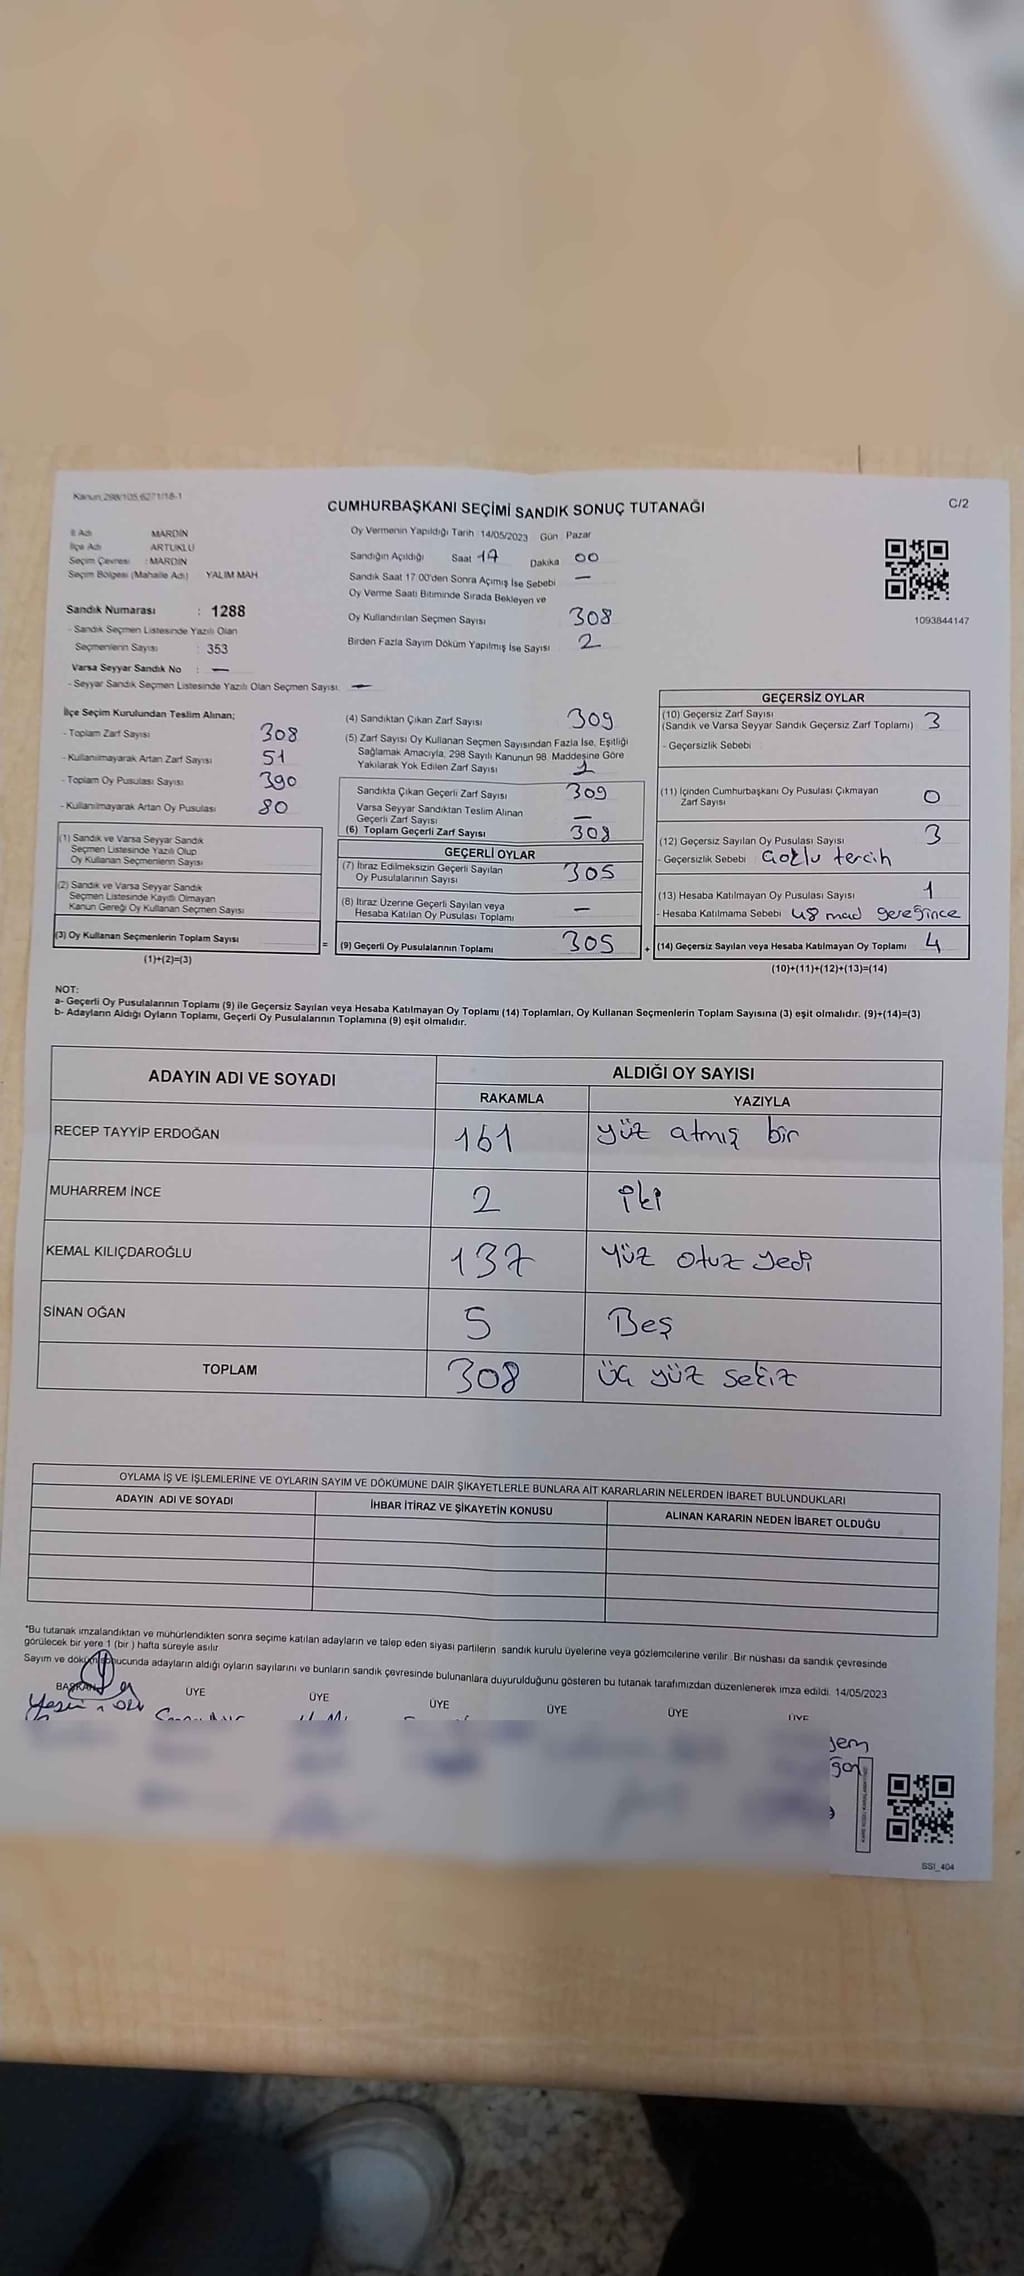 Kanun,298/105,6271/18-1
CUMHURBAŞKANI SEÇİMİ SANDIK SONUÇ TUTANAĞI
C/2
İl Adı MARDİN
İlçe Adı ARTUKLU
Seçim Çevresi : MARDİN
Seçim Bölgesi (Mahalle Adı) YALIM MAH
Sandık Numarası : 1288
- Sandık Seçmen Listesinde Yazılı Olan
Seçmenlerin Sayısı : 353
Varsa Seyyar Sandık No : —
- Seyyar Sandık Seçmen Listesinde Yazılı Olan Seçmen Sayısı: —
Oy Vermenin Yapıldığı Tarih :14/05/2023 Gün : Pazar
Sandığın Açıldığı Saat 17 Dakika 00
Sandık Saat 17:00'den Sonra Açımış İse Sebebi —
Oy Verme Saati Bitiminde Sırada Bekleyen ve
Oy Kullandırılan Seçmen Sayısı 308
Birden Fazla Sayım Döküm Yapılmış İse Sayısı 2
1093844147
İlçe Seçim Kurulundan Teslim Alınan;
- Toplam Zarf Sayısı 308
- Kullanılmayarak Artan Zarf Sayısı 51
- Toplam Oy Pusulası Sayısı 390
- Kullanılmayarak Artan Oy Pusulası 80
(1) Sandık ve Varsa Seyyar Sandık
Seçmen Listesinde Yazılı Olup
Oy Kullanan Seçmenlerin Sayısı
(2) Sandık ve Varsa Seyyar Sandık
Seçmen Listesinde Kayıtlı Olmayan
Kanun Gereği Oy Kullanan Seçmen Sayısı
(3) Oy Kullanan Seçmenlerin Toplam Sayısı
(1)+(2)=(3)
=
(4) Sandıktan Çıkan Zarf Sayısı 309
(5) Zarf Sayısı Oy Kullanan Seçmen Sayısından Fazla İse, Eşitliği
Sağlamak Amacıyla, 298 Sayılı Kanunun 98. Maddesine Göre
Yakılarak Yok Edilen Zarf Sayısı 1
Sandıkta Çıkan Geçerli Zarf Sayısı 309
Varsa Seyyar Sandıktan Teslim Alınan
Geçerli Zarf Sayısı —
(6) Toplam Geçerli Zarf Sayısı 308
GEÇERLİ OYLAR
(7) İtiraz Edilmeksizin Geçerli Sayılan
Oy Pusulalarının Sayısı 305
(8) İtiraz Üzerine Geçerli Sayılan veya
Hesaba Katılan Oy Pusulası Toplamı —
(9) Geçerli Oy Pusulalarının Toplamı 305
+
GEÇERSİZ OYLAR
(10) Geçersiz Zarf Sayısı
(Sandık ve Varsa Seyyar Sandık Geçersiz Zarf Toplamı) 3
- Geçersizlik Sebebi
(11) İçinden Cumhurbaşkanı Oy Pusulası Çıkmayan
Zarf Sayısı 0
(12) Geçersiz Sayılan Oy Pusulası Sayısı 3
- Geçersizlik Sebebi Çoklu tercih
(13) Hesaba Katılmayan Oy Pusulası Sayısı 1
- Hesaba Katılmama Sebebi 48 mad gereğince
(14) Geçersiz Sayılan veya Hesaba Katılmayan Oy Toplamı 4
(10)+(11)+(12)+(13)=(14)
NOT:
a- Geçerli Oy Pusulalarının Toplamı (9) ile Geçersiz Sayılan veya Hesaba Katılmayan Oy Toplamı (14) Toplamları, Oy Kullanan Seçmenlerin Toplam Sayısına (3) eşit olmalıdır. (9)+(14)=(3)
b- Adayların Aldığı Oyların Toplamı, Geçerli Oy Pusulalarının Toplamına (9) eşit olmalıdır.
ADAYIN ADI VE SOYADI
ALDIĞI OY SAYISI
RAKAMLA YAZIYLA
RECEP TAYYİP ERDOĞAN 161 yüz atmış bir
MUHARREM İNCE 2 iki
KEMAL KILIÇDAROĞLU 137 Yüz otuz yedi
SİNAN OĞAN 5 Beş
TOPLAM 308 üç yüz sekiz
OYLAMA İŞ VE İŞLEMLERİNE VE OYLARIN SAYIM VE DÖKÜMÜNE DAİR ŞİKAYETLERLE BUNLARA AİT KARARLARIN NELERDEN İBARET BULUNDUKLARI
ADAYIN ADI VE SOYADI İHBAR İTİRAZ VE ŞİKAYETİN KONUSU ALINAN KARARIN NEDEN İBARET OLDUĞU
*Bu tutanak imzalandıktan ve mühürlendikten sonra seçime katılan adayların ve talep eden siyasi partilerin sandık kurulu üyelerine veya gözlemcilerine verilir. Bir nüshası da sandık çevresinde
görülecek bir yere 1 (bir ) hafta süreyle asılır.
Sayım ve döküm sonucunda adayların aldığı oyların sayılarını ve bunların sandık çevresinde bulunanlara duyurulduğunu gösteren bu tutanak tarafımızdan düzenlenerek imza edildi. 14/05/2023
BAŞKAN ÜYE ÜYE ÜYE ÜYE ÜYE ÜYE
SSI_404